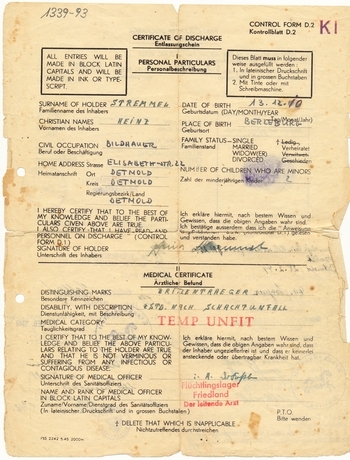 1339-93
CONTROL FORM D.2
Kontrollblatt D.2
K1
CERTIFICATE OF DISCHARGE
Entlassungschein
I
PERSONAL PARTICULARS
Personalbeschreibung
ALL ENTRIES WILL BE MADE IN BLOCK LATIN CAPITALS AND WILL BE MADE IN INK OR TYPE-SCRIPT.
Dieses Blatt muss in folgender weise ausgefüllt werden:
1. In lateinischer Druckschrift und in grossen Buchstaben.
2. Mit Tinte oder mit Schreibmaschine.
SURNAME OF HOLDER STREMMEL
Familienname des Inhabers
DATE OF BIRTH 13.12.10
Geburtsdatum (DAY/MONTH/YEAR)
CHRISTIAN NAMES HEINZ
Vornamen des Inhabers
PLACE OF BIRTH BERLEBURG
Geburtsort
CIVIL OCCUPATION BILDHAUER
Beruf oder Beschäftigung
FAMILY STATUS—SINGLE † Ledig
Familienstand MARRIED Verheiratet
WIDOW(ER) Verwitwet
DIVORCED Geschieden
HOME ADDRESS Strasse ELISABETH-STR. 22
Heimatanschrift Ort DETMOLD
Kreis DETMOLD
Regierungsbezirk/Land
DETMOLD
NUMBER OF CHILDREN WHO ARE MINORS
Zahl der minderjährigen Kinder
I HEREBY CERTIFY THAT TO THE BEST OF MY KNOWLEDGE AND BELIEF THE PARTICULARS GIVEN ABOVE ARE TRUE.
I ALSO CERTIFY THAT I HAVE READ AND
PERSONNEL ON DISCHARGE" (CONTROL FORM D.1)
SIGNATURE OF HOLDER
Unterschrift des Inhabers
Ich erkläre hiermit, nach bestem Wissen und Gewissen, dass die obigen Angaben wahr sind.
Ich bestätige ausserdem dass ich die "Anweisung
verstanden habe.
II
MEDICAL CERTIFICATE
Ärztlicher Befund
DISTINGUISHING MARKS BRILLENTRAEGER
Besondere Kennzeichen
DISABILITY, WITH DESCRIPTION
Dienstunfähigkeit, mit Beschreibung
NACH SCHACHTUNFALL
MEDICAL CATEGORY
Tauglichkeitsgrad
TEMP UNFIT
I CERTIFY THAT TO THE BEST OF MY KNOWLEDGE AND BELIEF THE ABOVE PARTICULARS RELATING TO THE HOLDER ARE TRUE AND THAT HE IS NOT VERMINOUS OR SUFFERING FROM ANY INFECTIOUS OR CONTAGIOUS DISEASE.
Ich erkläre hiermit, nach bestem Wissen und Gewissen, dass die obigen Angaben wahr sind, dass der Inhaber ungezieferfrei ist und dass er keinerlei ansteckende oder übertragbare Krankheit hat.
SIGNATURE OF MEDICAL OFFICER
Unterschrift des Sanitätsoffiziers
NAME AND RANK OF MEDICAL OFFICER IN BLOCK LATIN CAPITALS
Zuname/Vorname/Dienstgrad des Sanitätsoffiziers
(In lateinischer Druckschrift und in grossen Buchstaben)
Flüchtlingslager
Friedland
Der leitende Arzt
P.T.O.
Bitte wenden
† DELETE THAT WHICH IS INAPPLICABLE
Nichtzutreffendes durchstreichen